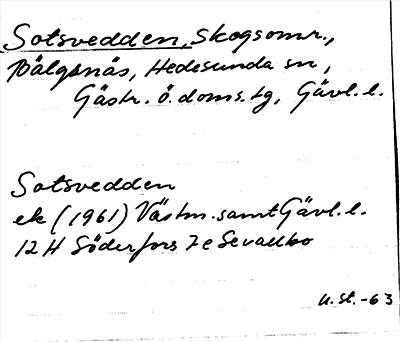 Sotsvedden, skogsomr.,
Bälgsnäs, Hedesunda sn,
Gästr. ö. doms.tg, Gävl. l.
Sotsvedden
ek (1961) Västm. samt Gävl. l.
12 H Söderfors 7 e Sevallbo
U. St. -63